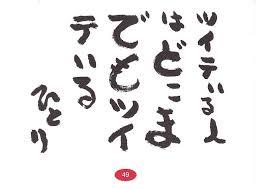 ツイテいる人
はどこま
でもツイ
テいる
ひとり
49